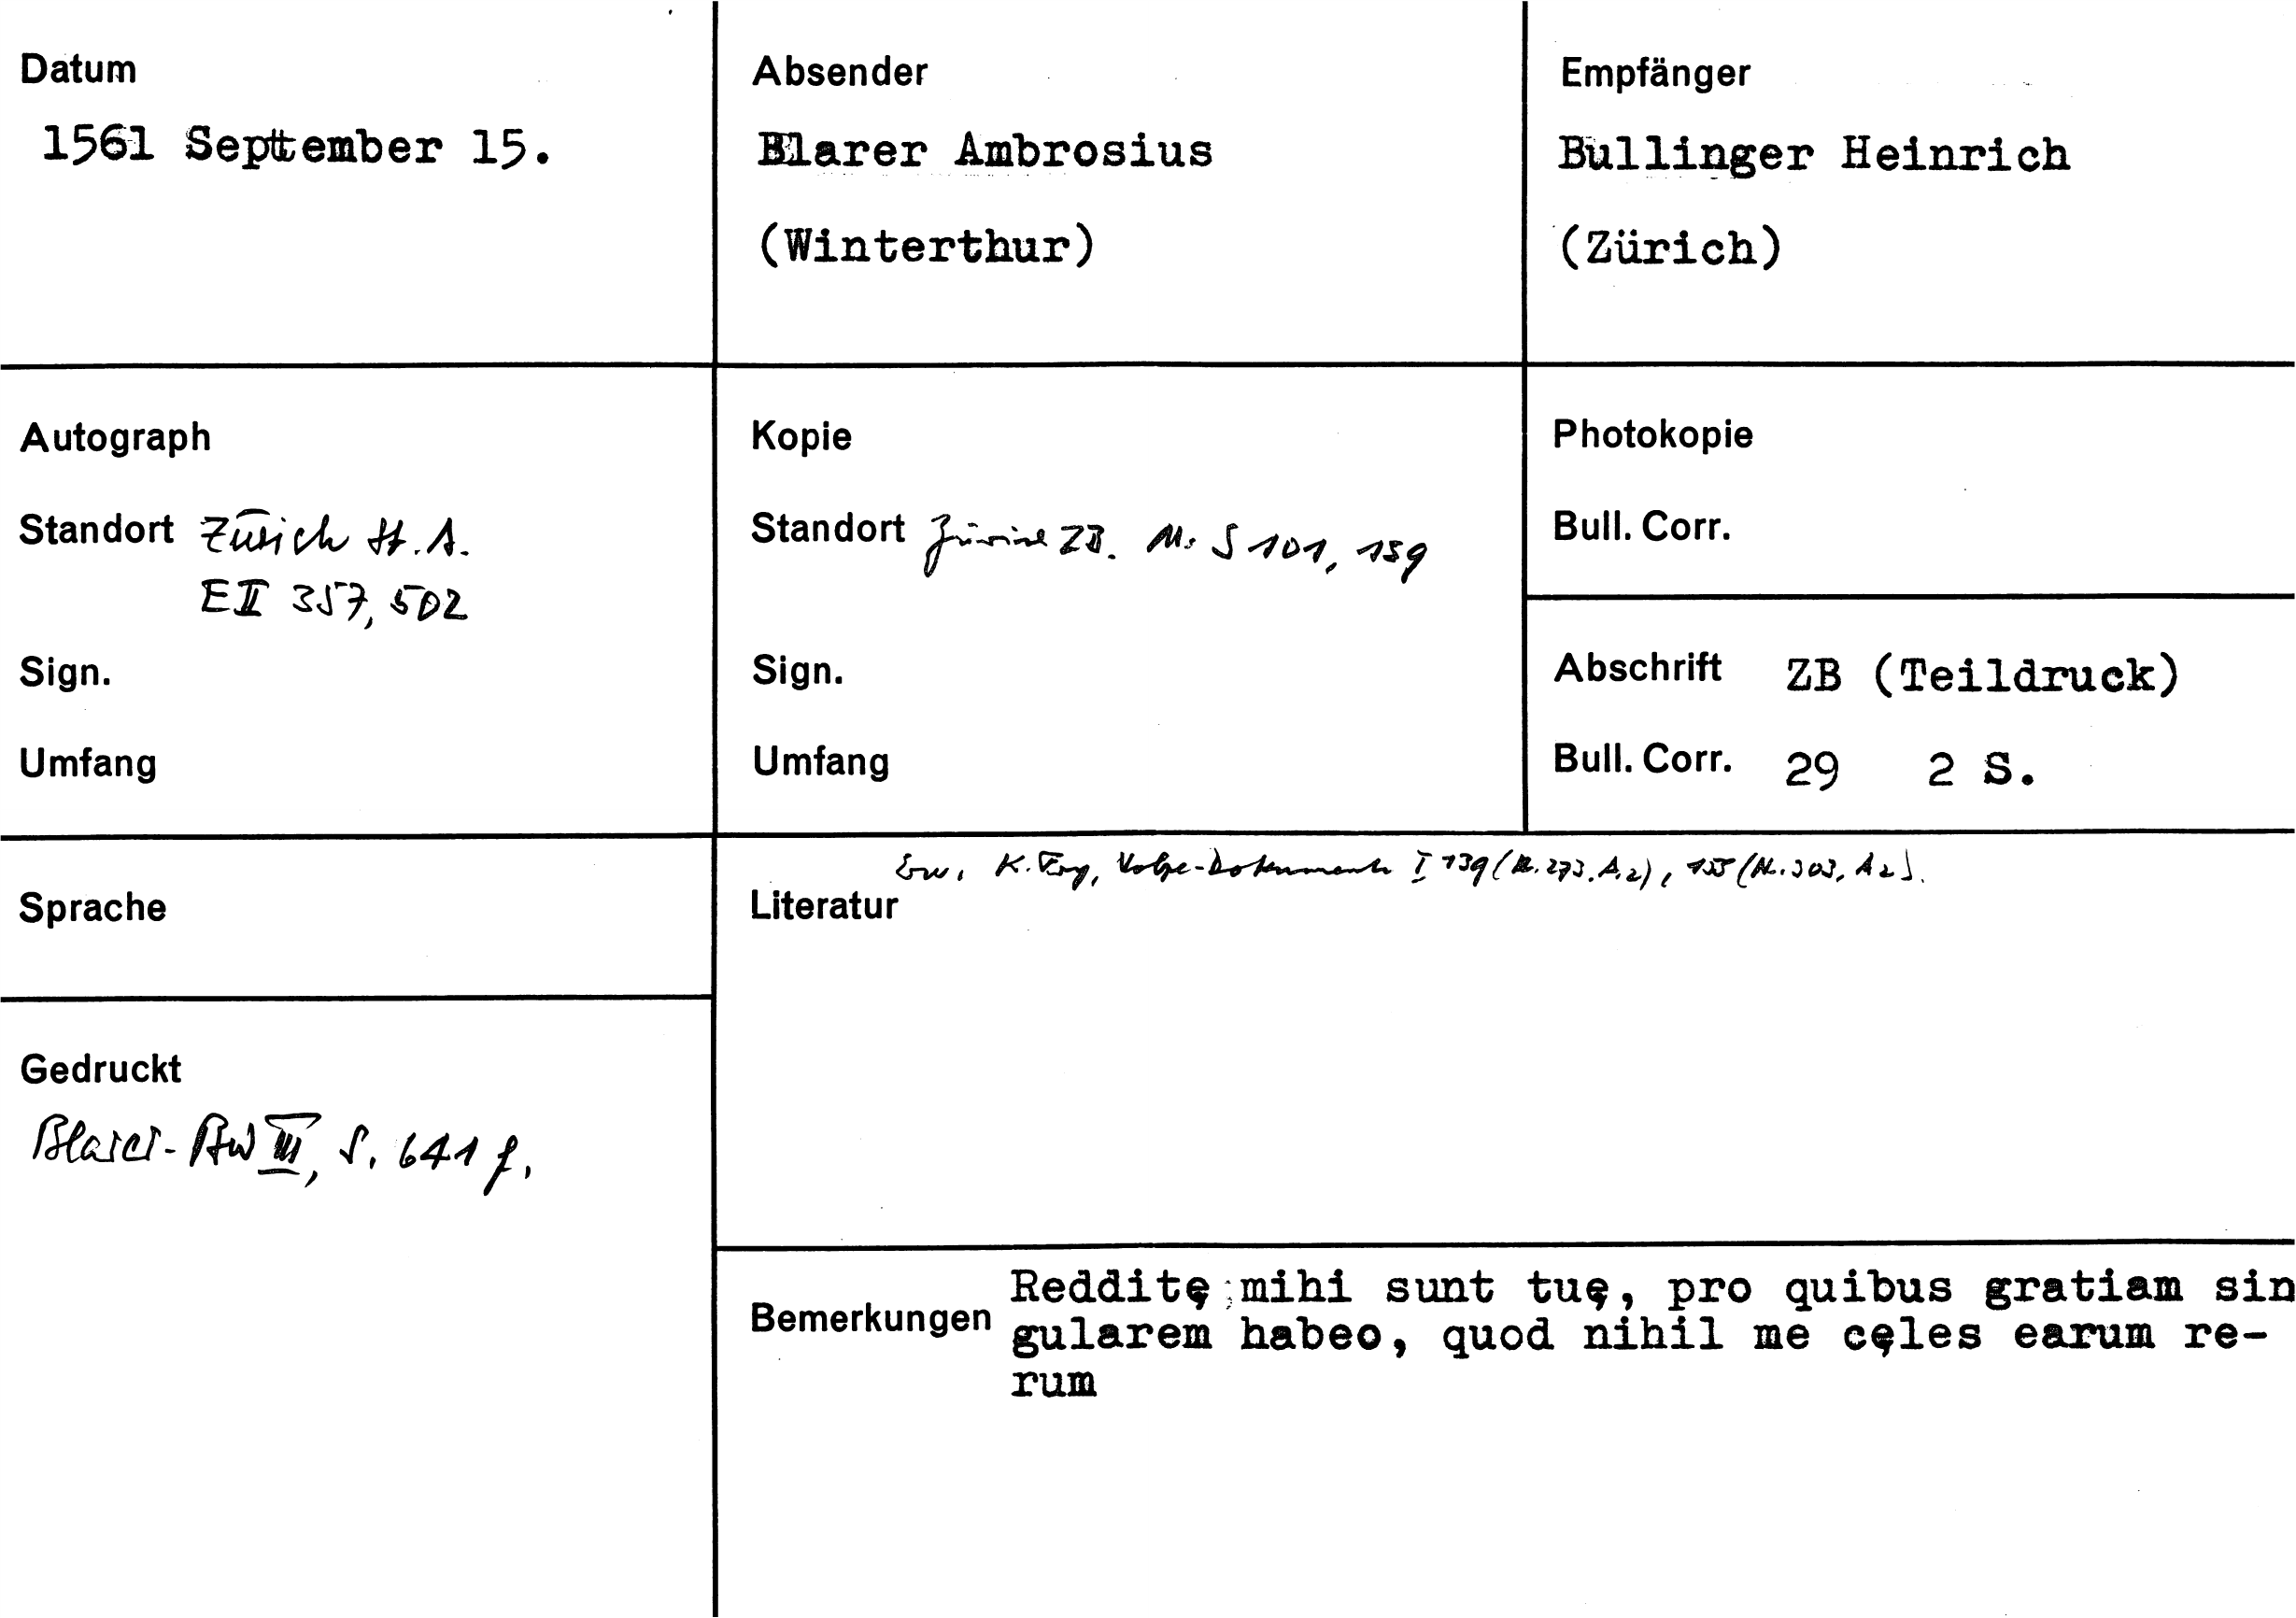 Datum
1561 September 15.
Absender
Blarer Ambrosius
(Winterthur)
Empfänger
Bullinger Heinrich
(Zürich)
Autograph
Standort Zürich St.A.
E II 357, 502
Sign.
Umfang
Kopie
Standort Zürich ZB. Ms S 101, 159
Sign.
Umfang
Photokopie
Bull. Corr.
Abschrift ZB (Teildruck)
Bull. Corr. 29 2 S.
Sprache
Erw. K. Fry, Volpe-Dokumente I 139 (N. 273. A.2), 155 (N. 303, A 2).
Literatur
Gedruckt
Blarer-BW III, S. 641 f.
Bemerkungen
Redditę mihi sunt tuę, pro quibus gratiam sin
gularem habeo, quod nihil me cęles earum re-
rum